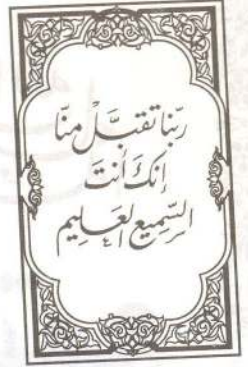 ربّنا تقبَّلْ منّا
إنكَ أنتَ
السّميع لعليم